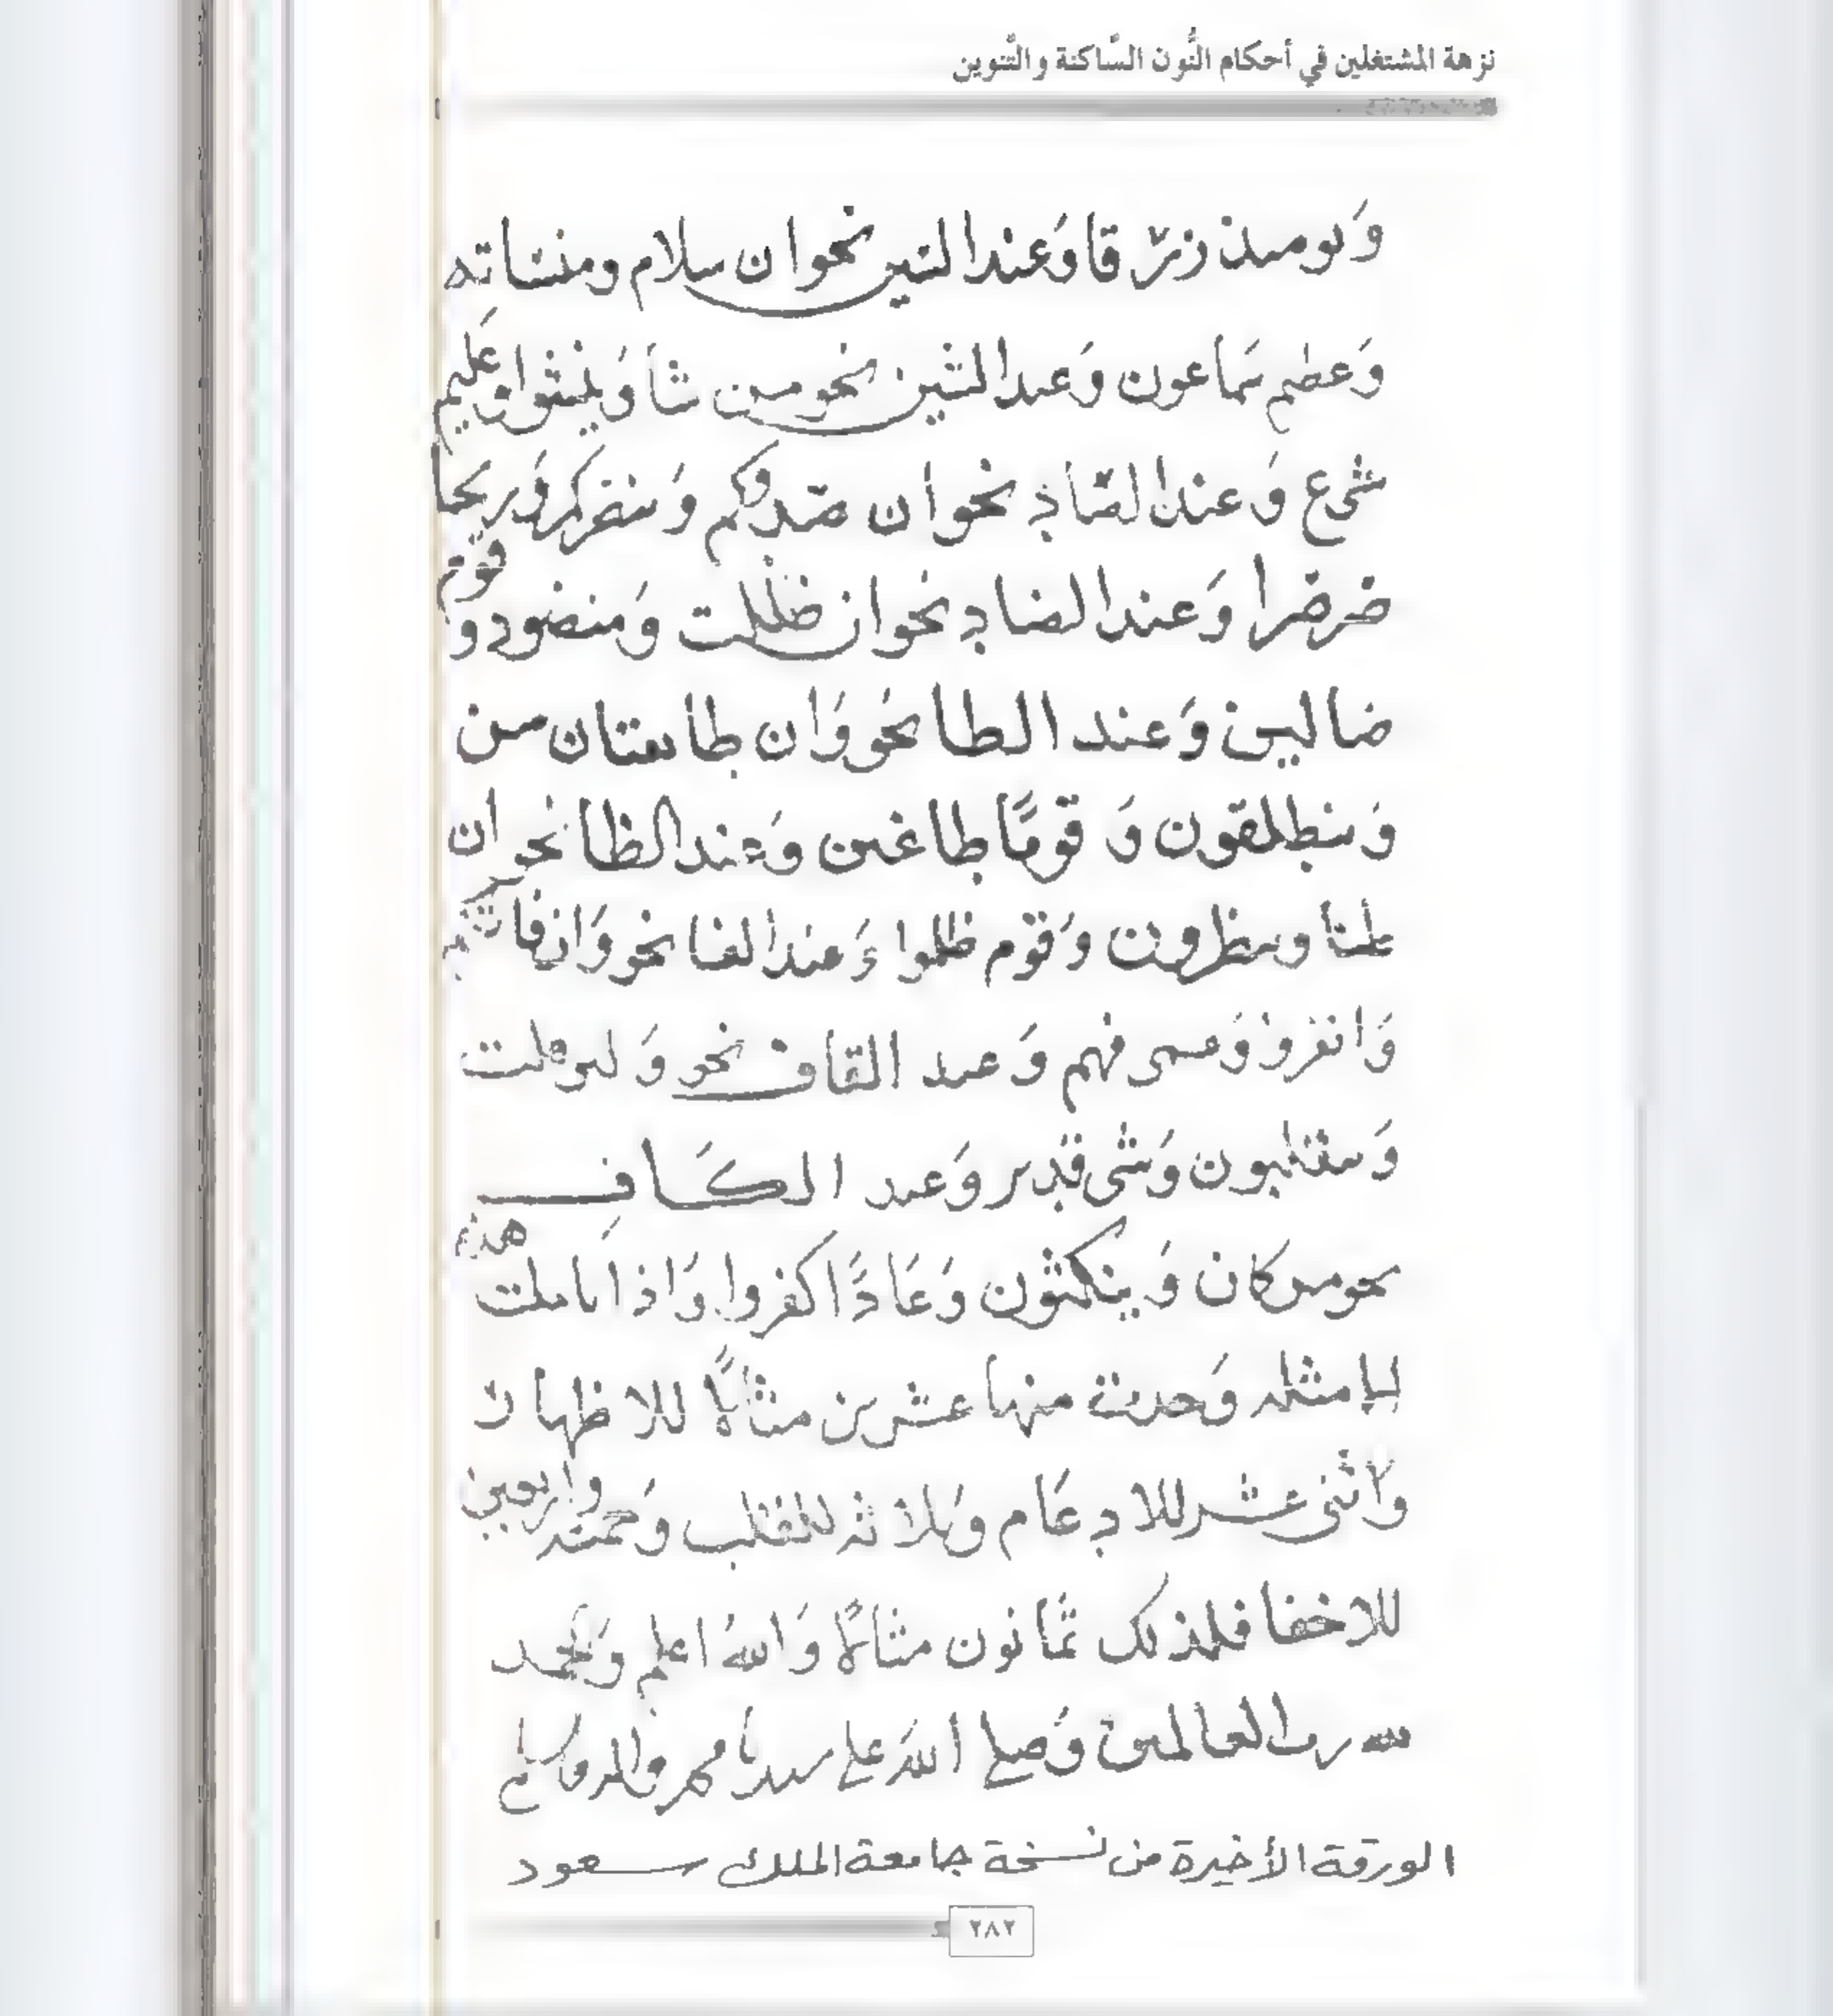 نزهة المشتغلين في أحكام النُّون السَّاكنة والتَّنوين
وَيومىذ زرقا وَعند السين نحو ان سلام ومنساته
وَعظيم سماعون وَعند الشين نحو من شأ وَينشوا وعليم
شرع وَعند الصَّاد نحو ان صدوكم وَينصركم وَريحا
صرصرا وَعند الضاد نحو ان ظللت وَمنضود وقوم
ضالين وَعند الطا نحو وَان طايفتان من
وَينطلقون وَ قومًا طاغين وَعند الظا نحو ان
ظنا وينظرون وَقوم ظلموا وَعند الفا نحو وَان فاتكم
وَانفروا وَعمى فهم وَعند القاف نحو وَ لىن قلت
وَينقلبون وَشى قدير وَعند الكاف
نحو من كان وَينكثون وَعَادًا كفروا وَاذا تاملت هذه
الامثله وَجدت منها عشرين مثالًا للاظهار
وَاثنى عشر للادغام وَثلاثه للقلب وَخمسه واربعين
للاخفا فلذلك ثمانون مثالًا وَالله اعلم وَالحمد
لله رب العالمين وَصلى الله على سيدنا محمد واله وسلم
الورقة الأخيرة من نسخة جامعة الملك سعود
٢٨٢